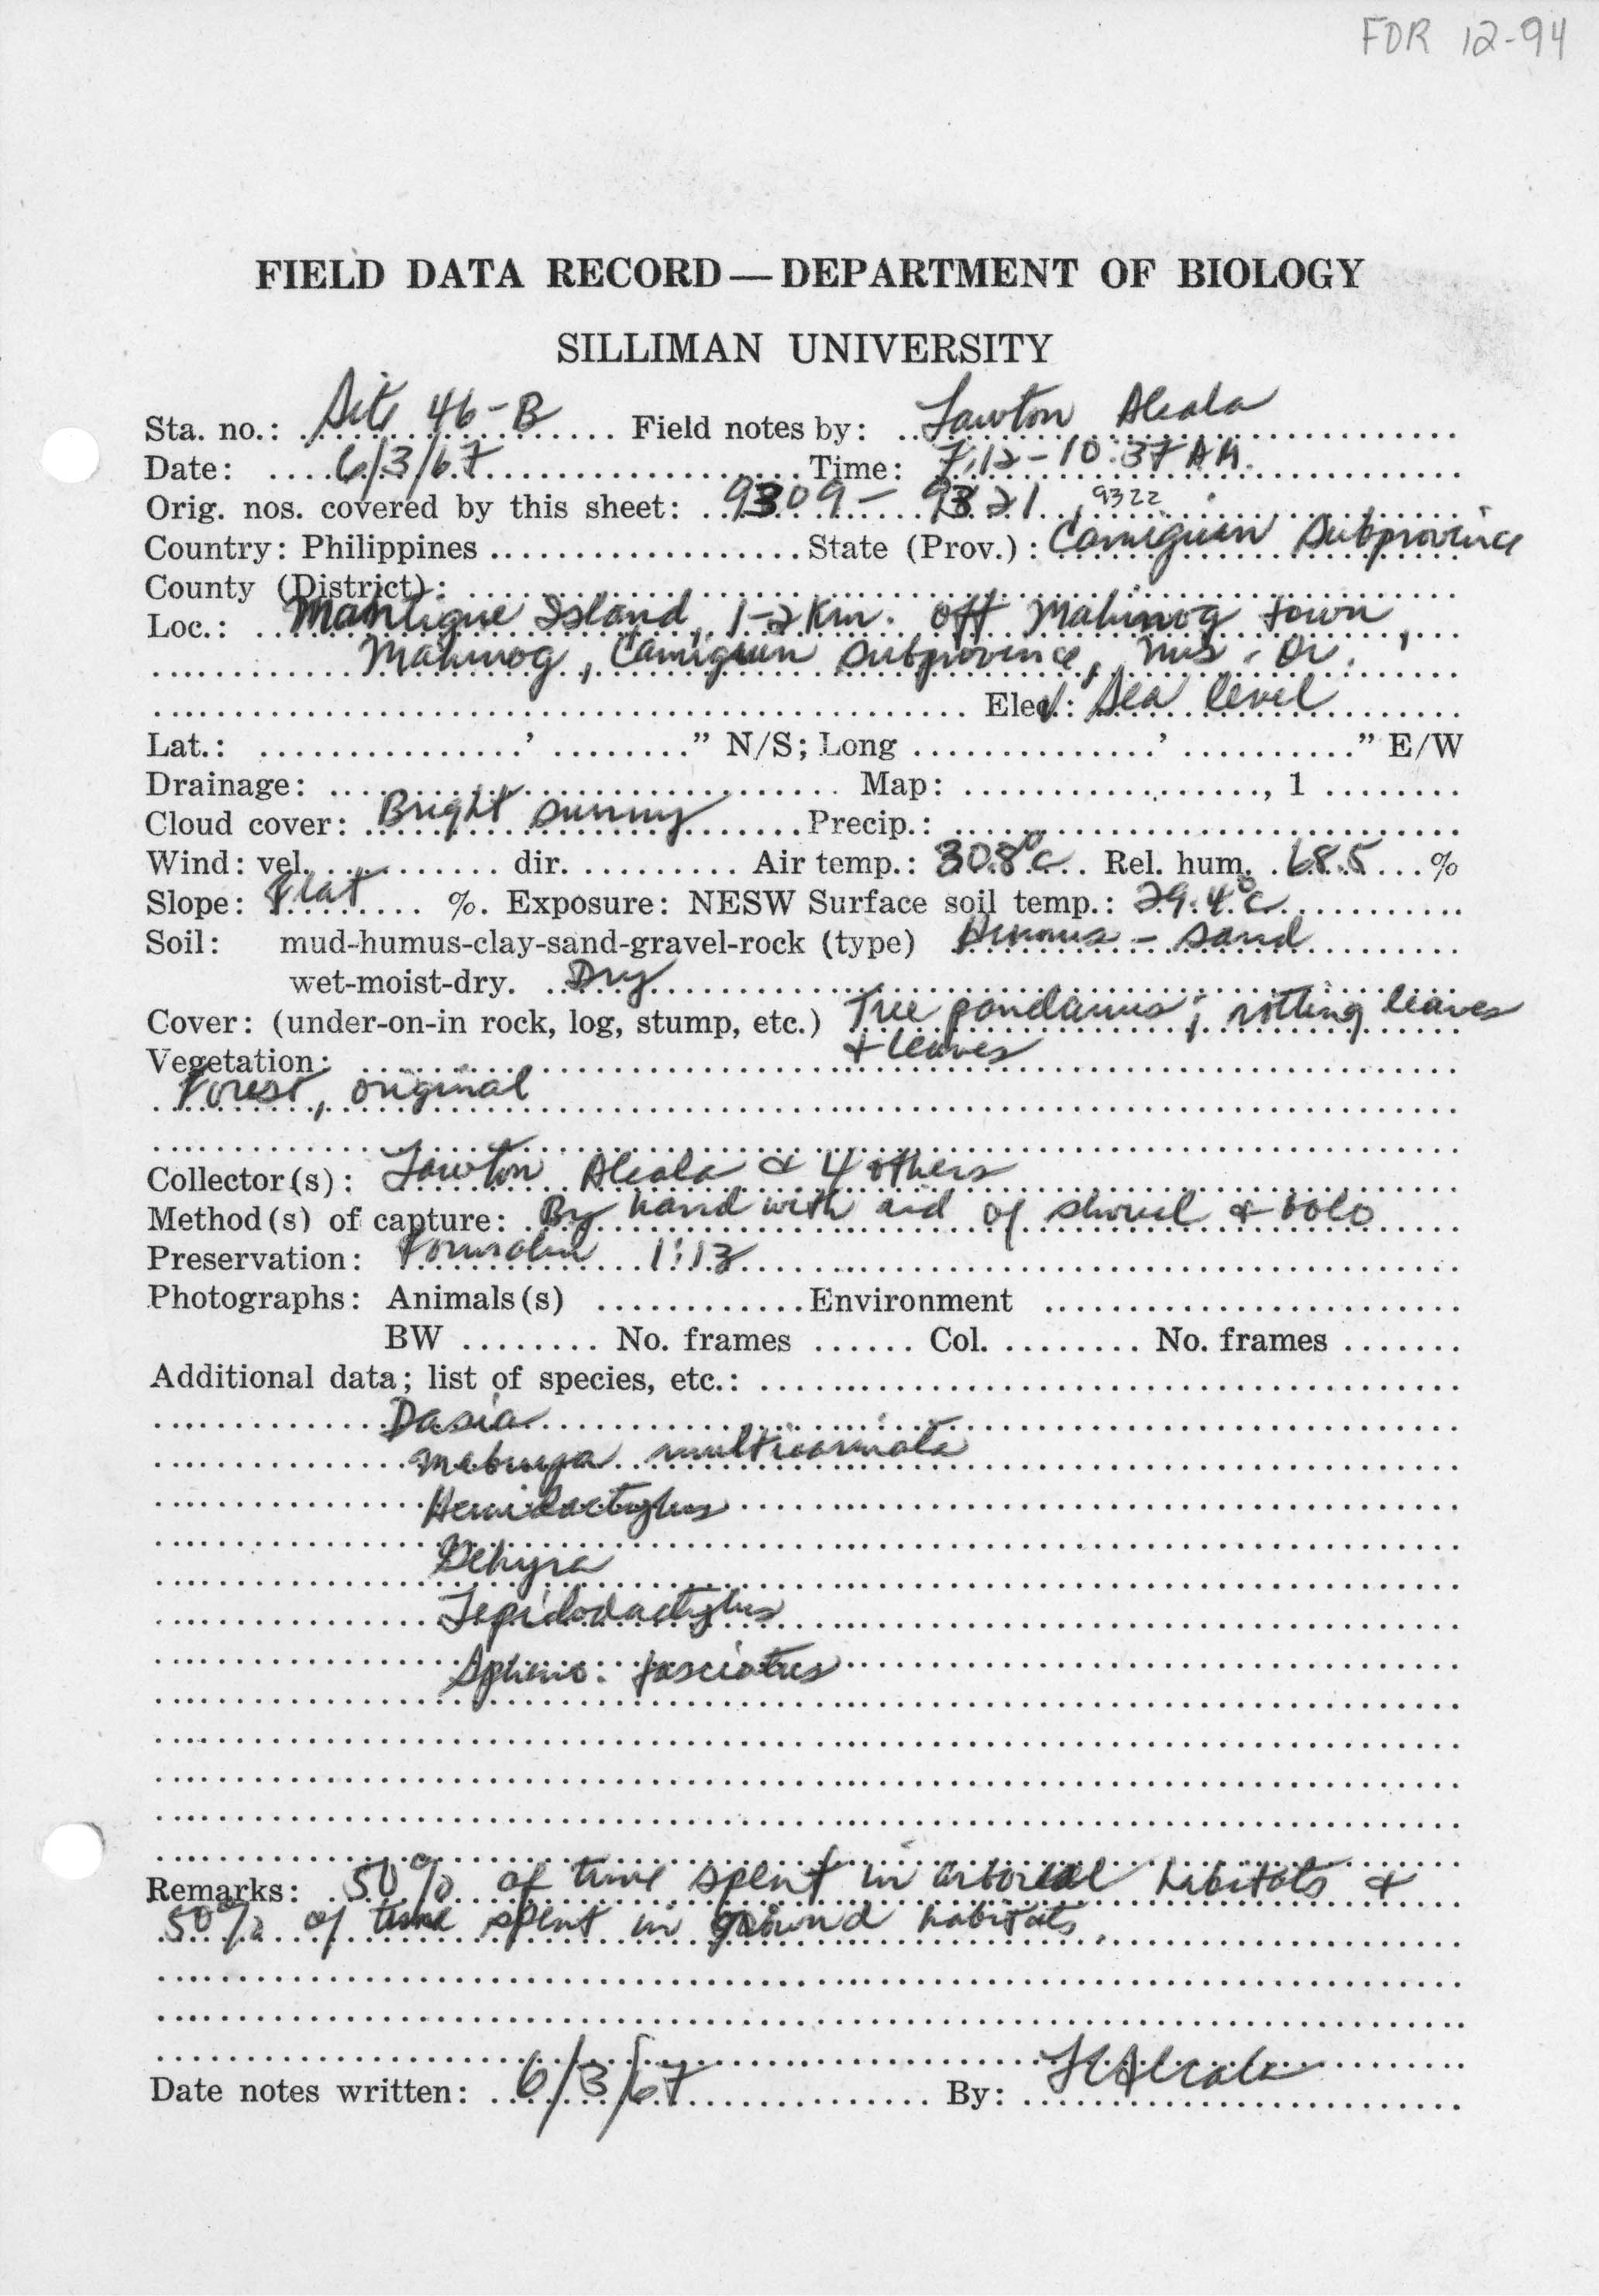 FDR 12-94
FIELD DATA RECORD—DEPARTMENT OF BIOLOGY
SILLIMAN UNIVERSITY
Sta. no.: Site 46-B Field notes by: Lawton Alcala
Date: 6/3/67 Time: 7:12 - 10:37 AM.
Orig. nos. covered by this sheet: 9309 - 9321, 9322
Country: Philippines State (Prov.): Camiguin Subprovince
County (District):
Loc.: Mantigue Island, 1-2 Km. off Mahinog town,
Mahinog, Camiguin subprovince, Mis. Or.
Elev.: Sea level
Lat.: ' " N/S; Long ' " E/W
Drainage: Map: , 1
Cloud cover: Bright sunny Precip.:
Wind: vel. dir. Air temp.: 30.8°C Rel. hum. 68.5 %
Slope: Flat %. Exposure: NESW Surface soil temp.: 29.4°C
Soil: mud-humus-clay-sand-gravel-rock (type) Humus - sand
wet-moist-dry. Dry
Cover: (under-on-in rock, log, stump, etc.) Tree pandanus; rotting leaves
+ leaves
Vegetation:
Forest, original
Collector(s): Lawton Alcala & 4 others
Method(s) of capture: By hand with aid of shovel & bolo
Preservation: Formalin 1:13
Photographs: Animals(s) Environment
BW No. frames Col. No. frames
Additional data; list of species, etc.:
Dasia
Mabuya multicarinata
Hemidactylus
Gehyra
Lepidodactylus
Spheno. fasciatus
Remarks: 50% of time spent in arboreal habitats &
50% of time spent in ground habitats.
Date notes written: 6/3/67 By: LCAlcala